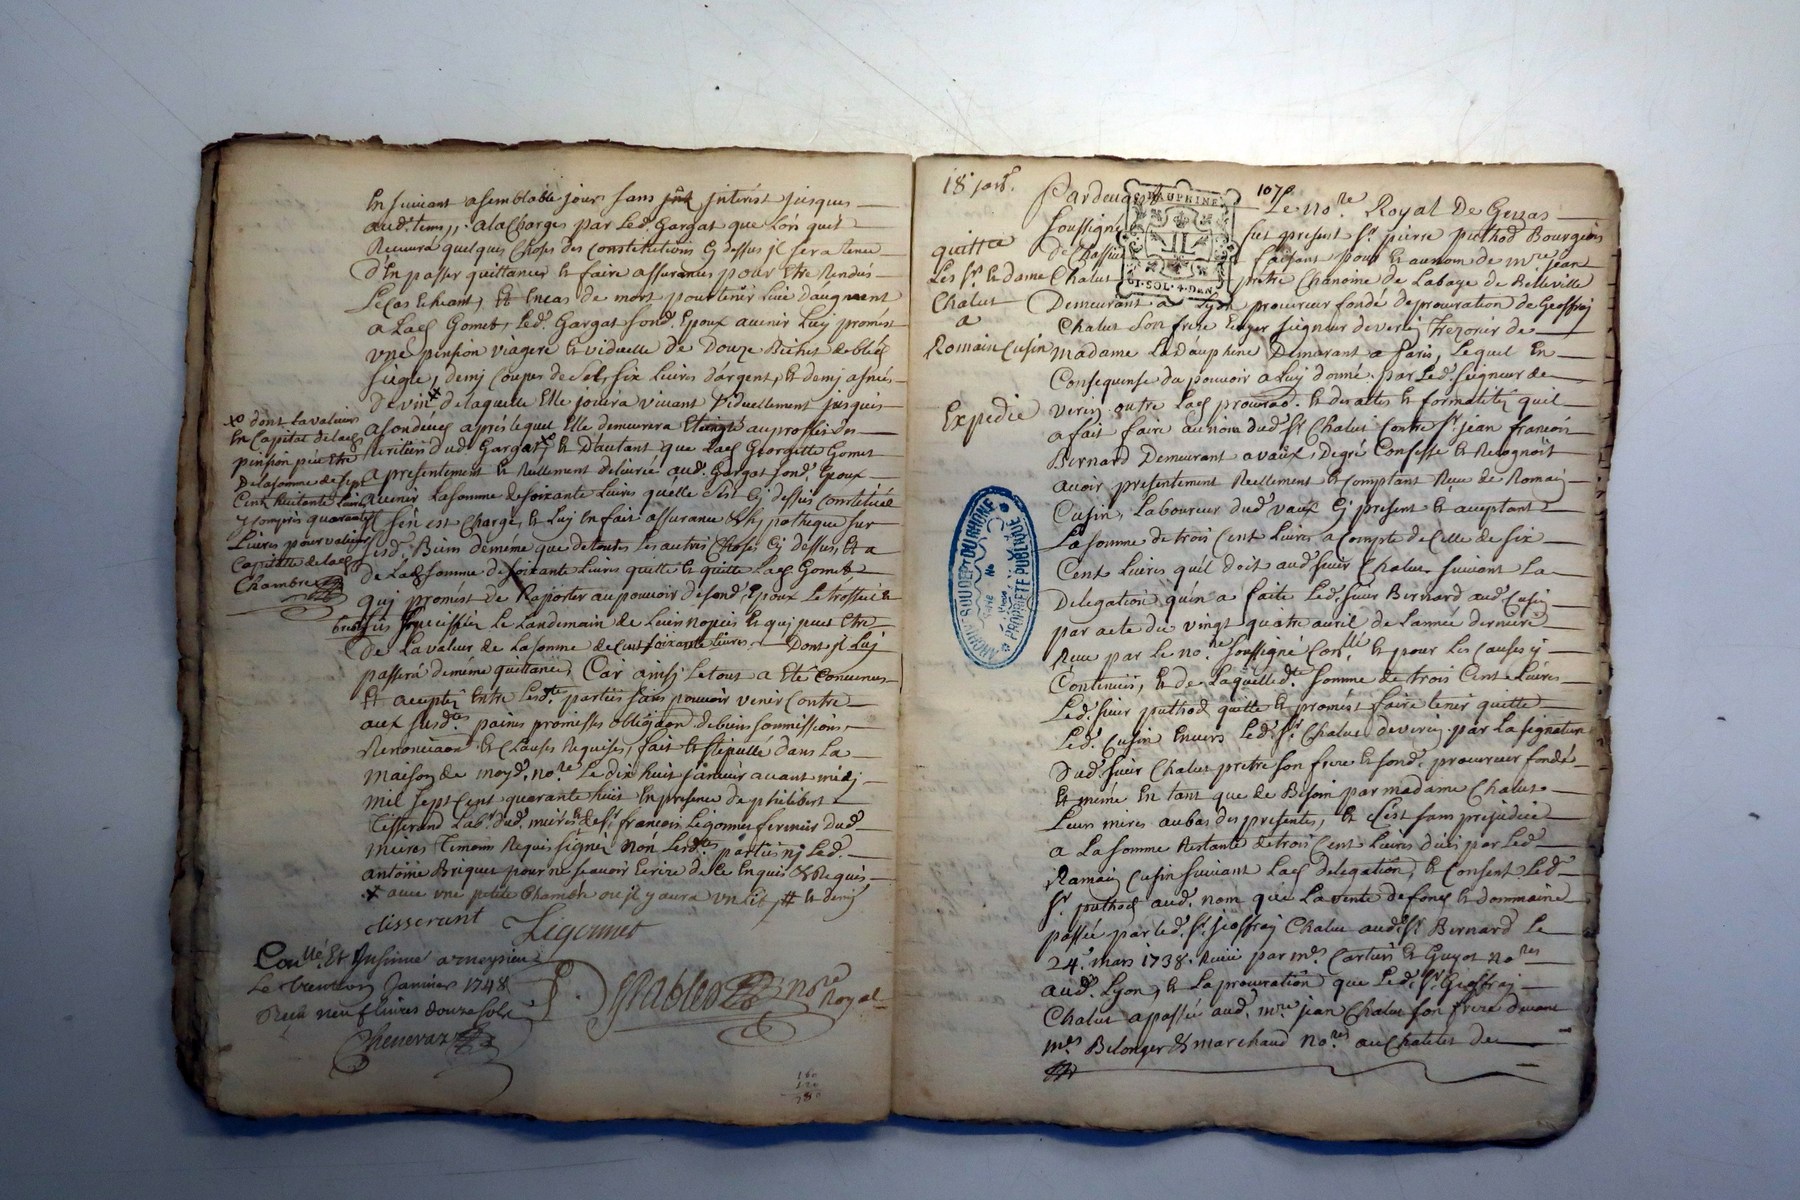 En suivant a semblable jour sans put interest jusques
aud. tems,, a la Charges par Led. Gargat que Lors quil
Recevra quelques Choses des constitutions Cy dessus il sera tenu
d'En passer quittances et faire assurances pour Etre Rendus
Le Cas Echeant, Et En cas de mort pour tenir Lieu d'augment
a Lad. Gomet, Led. Gargat fond. Epoux avenir Luy promest
une pension viagere et viduelle de Douze Bichet de bled
siegle, demj Coupes de Sel, six Livres d'argent, et demj asnée
de vin x de laquelle Elle jouira vivant Viduellement jusques
x dont la valeur
En Capital de lad.
pension peut Etre
De la somme de sept
Cent huitante Livres
y compris quarante
Livres pour valeur
Capitalle de lad.
Chambre
a son deces apres lequel Elle demeurera Eteinte au proffit des
heritiers dud. Gargat, x Et D'autant que Lad. Georgette Gomet
a presentement et Reellement delivrée aud. Gargat fond. Epoux
avenir La somme de soixante Livres qu'elle s'est Cy dessus constituée
il s'en est Chargé, et Luy En fait assurance & hypotheque sur
sesd. Biens de meme que de toutes Les autres Choses Cy dessus, Et a
de Lad. somme de soixante Livres quitté et quitte Lad. Gomet
quj promest de Raporter au pouvoir de fond. Epoux Le trossel &
brebis specifiés Le Landemain de Leurs nopces Et qui peut Etre
de La valeur de La somme de Cent soixante Livres Dont il Luj
passera de meme quittance, Car ainsj Le tout a Eté Convenus
Et accepté Entre Lesd. parties sans pouvoir venir Contre
aux susd. paines promesses obligaon de biens soumissions,
Renonciaon Et Clauses Requises, fait Et stipullé dans La
maison de moyd. no.re Le dix huit janvier avant midj
mil sept Cent quarante huit En presence de philibert
Tisserand Lab. dud. mieres et de S. francois Ligonnet fermier dud.
mieres Temoins Requis signés Non Lesd. parties nj Led.
antoine Briquet pour ne scavoir Ecrire de Ce Enquis & Requis
x avec une petite Chambre ou il y aura un Lit, # et demj
tisserant Ligonnet
Con.llé Et Insinué a meysieu
Le trente un Janvier 1748
Reçu neuf livres douze sols
Chenevaz
no.re Royal
160
18 janv.
107
quittce
Les S. et dame
Chalut
a
Romain Cusin
Expedié
DAUPHINE
UN SOL 4 DEN
Pardevant Le no.re Royal De Genas
soussigné fut present S. pierre puthod Bourgeois
de Chassieu faisant pour Et au nom de m.re jean
Chalut pretre Chanoine de Labaye de Belleville
Demeurant a Lyon procureur fondé de procuration de Geoffroj
Chalut Son frere Ecuyer seigneur de verin Trezorier de
Madame La Dauphine Demeurant a Paris, Lequel En
Consequense du pouvoir a Luy donné par Led. seigneur de
verin outre Lad. procurao. Et des actes Et formalités quil
a fait faire au nom dud. S. Chalut Contre S. jean francois
Bernard Demeurant a vaux, Degré Confesse Et Recognoit
avoir presentement Reellement Et Comptant Receu de Romain
Cusin, Laboureur dud. vaux Cy present Et acceptant
La somme de trois Cent Livres a Compte de Celle de six
Cent Livres quil doit aud. sieur Chalut suivant La
Delegation qu'en a faite Led. sieur Bernard aud. Cusin
par acte du vingt quatre avril de L'année derniere
Receu par Le no.re soussigné Con.llé Et pour Les Causes y
Contenues, Et de Laquelle d.te somme de trois Cent Livres
Led. sieur puthod quitte Et promest faire tenir quitte
Led. Cusin Envers Led. S. Chalut de verin par La signature
Dud. sieur Chalut pretre son frere Et fond. procureur fondé
Et meme En tant que de Besoin par madame Chalut
Leurs meres au bas des presentes, Et C'est sans prejudice
a La somme Restante de trois Cent Livres dües par Led.
Romain Cusin suivant Lad. delegation, Et Consent Led.
S. puthod aud. nom que La vente de fond Et dommaine
passée par Led. S. Geoffroj Chalut aud. S. Bernard Le
24. mars 1738. Receue par m.es Cartier Et Guyot no.res
aud. Lyon, Et La procuration que Led. S. Geoffroj
Chalut a passée aud. m.re jean Chalut son frere devant
m.es Belonger & marchand no.res au Chatelet de
ARCHIVES DU DEP.T DU RHONE
PROPRIETE PUBLIQUE